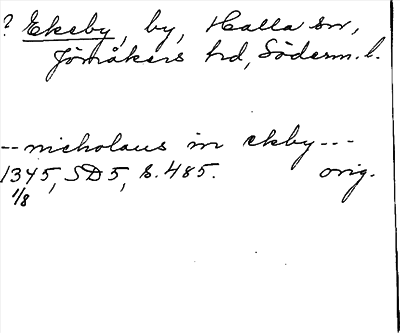 ? Ekeby, by, Halla sn,
Jönåkers hd, Söderm. l.
-- nicholaus in ekby ---
1345, SD 5, s. 485. orig.
1/8